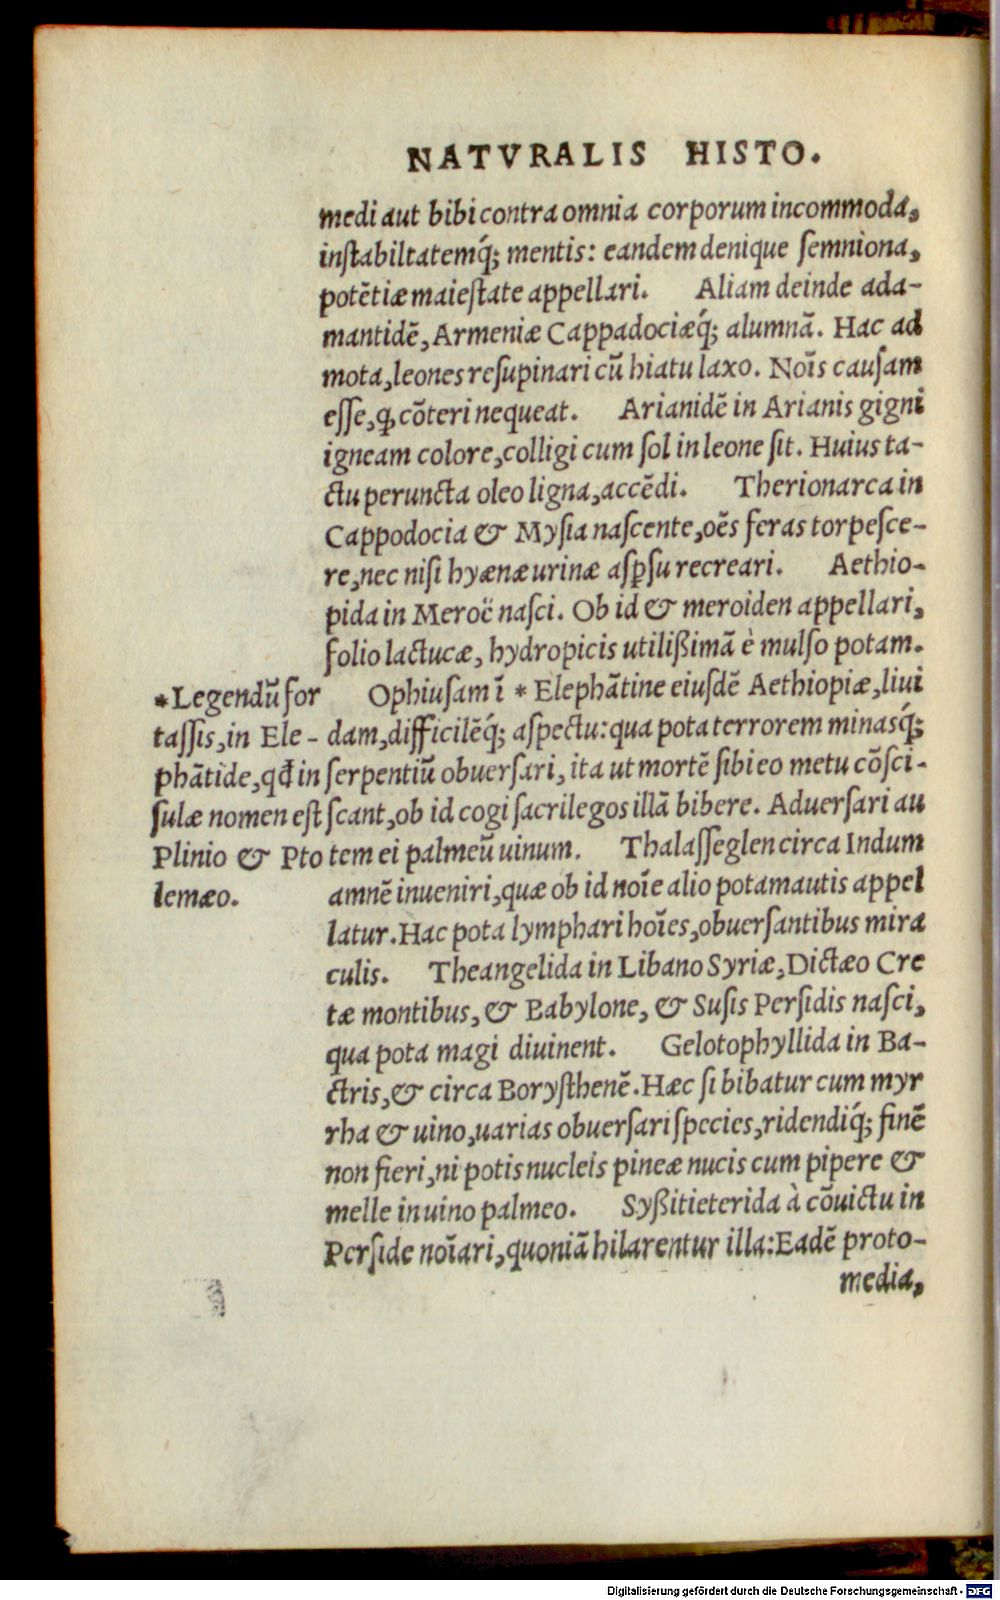 NATVRALIS HISTO.
medi aut bibi contra omnia corporum incommoda,
instabiltatemq́; mentis: eandem denique semniona,
potētiæ maiestate appellari. Aliam deinde ada-
mantidē, Armeniæ Cappadociæq́; alumnā. Hac ad
mota, leones resupinari cū hiatu laxo. Noīs causam
esse, ꝙ cōteri nequeat. Arianidē in Arianis gigni
igneam colore, colligi cum sol in leone sit. Huius ta-
ctu peruncta oleo ligna, accēdi. Therionarca in
Cappodocia & Mysia nascente, oēs feras torpesce-
re, nec nisi hyænæ urinæ asꝑsu recreari. Aethio-
pida in Meroë nasci. Ob id & meroiden appellari,
folio lactucæ, hydropicis utilißimā è mulso potam.
Ophiusam ī * Elephātine eiusdē Aethiopiæ, liui
dam, difficilēq́; aspectu: qua pota terrorem minasq́;
serpentiū obuersari, ita ut mortē sibi eo metu cōsci-
scant, ob id cogi sacrilegos illā bibere. Aduersari au
tem ei palmeū uinum. Thalasseglen circa Indum
amnē inueniri, quæ ob id noīe alio potamautis appel
latur. Hac pota lymphari hoīes, obuersantibus mira
culis. Theangelida in Libano Syriæ, Dictæo Cre
tæ montibus, & Babylone, & Susis Persidis nasci,
qua pota magi diuinent. Gelotophyllida in Ba-
ctris, & circa Borysthenē. Hæc si bibatur cum myr
rha & uino, uarias obuersari species, ridendiq́; finē
non fieri, ni potis nucleis pineæ nucis cum pipere &
melle in uino palmeo. Syßitieterida à cōuictu in
Perside noīari, quoniā hilarentur illa: Eadē proto-
media,
*Legendū for
tassis, in Ele-
phātide, qđ in
sulæ nomen est
Plinio & Pto
lemæo.
Digitalisierung gefördert durch die Deutsche Forschungsgemeinschaft - DFG